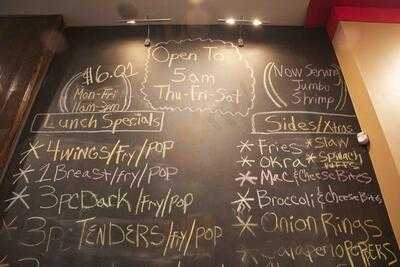 $6.01
Mon-Fri
11am-3pm
Open To
5am
Thu-Fri-Sat
Now Serving
Jumbo
Shrimp
Lunch Specials
* 4 WINGS/Fry/POP
* 1 Breast/Fry/POP
* 3pc Dark/Fry/POP
* 3pc TENDERS/Fry/POP
Sides/Xtras
* Fries
* Slaw
* OKRA
* Spinach
* Mac & Cheese Bites
* Broccoli & Cheese Bites
* Onion Rings
* Jalapeno POPERS